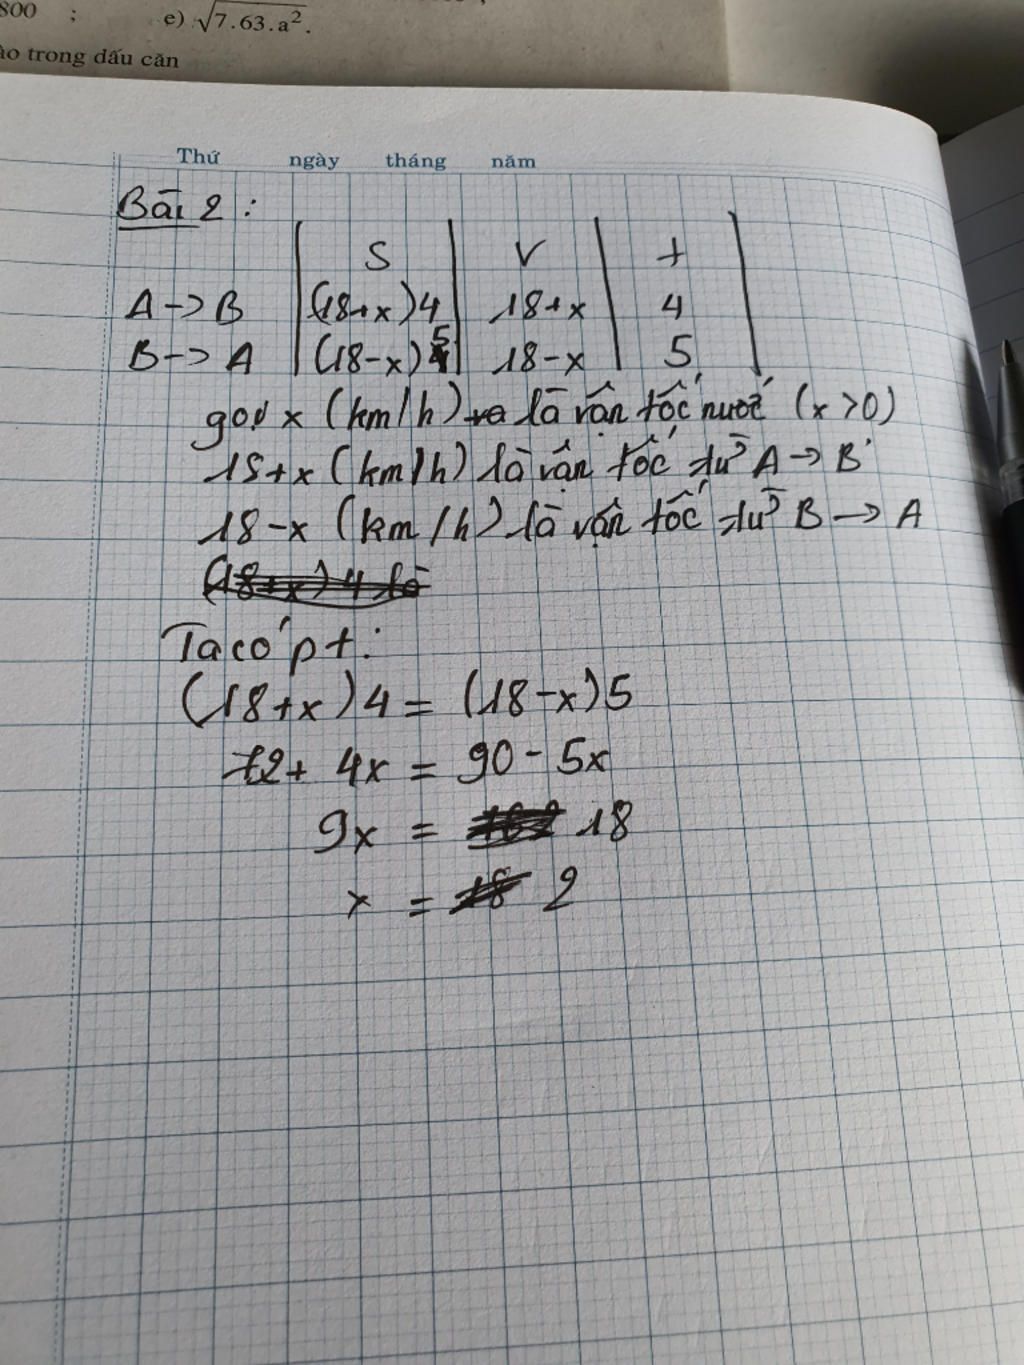 800 ; e) √7.63.a².
ào trong dấu căn
Thứ ngày tháng năm
Bài 2 :
S V t
A -> B (18+x)4 18+x 4
B -> A (18-x)5 18-x 5
gọi x (km/h) là vận tốc nước (x >0)
18+x (km/h) là vận tốc từ A -> B
18-x (km/h) là vận tốc từ B -> A
(18+x) 4 là
Ta có pt :
(18+x)4 = (18-x)5
72+ 4x = 90 - 5x
9x = 18
x = 2